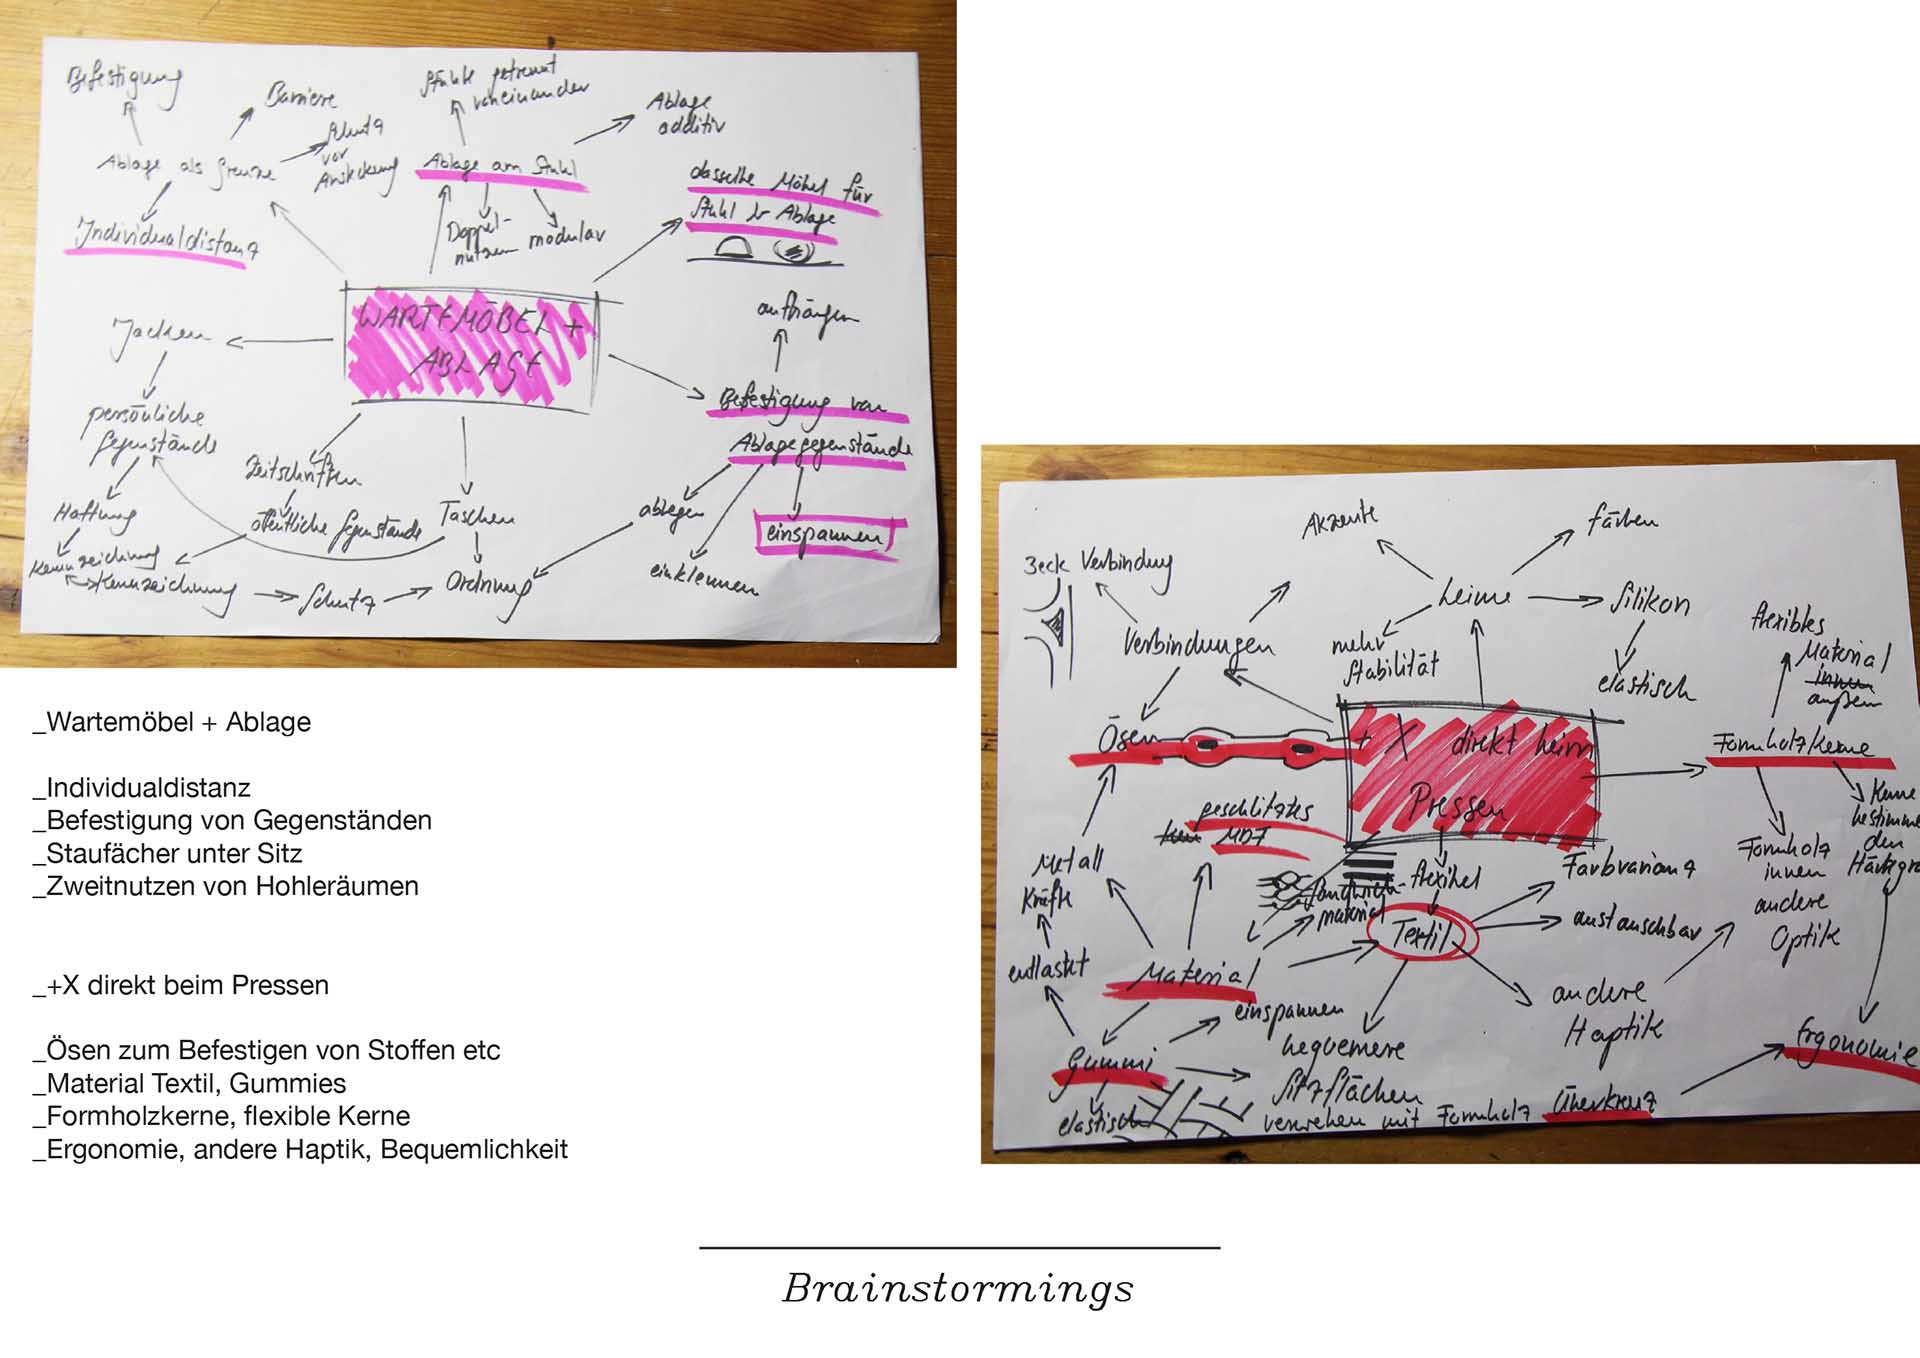 Befestigung
Barriere
Stühle getrennt
voneinander
Ablage
additiv
Schutz
vor
Ansteckung
Ablage als Grenze
Ablage am Stuhl
dasselbe Möbel für
Stuhl & Ablage
Individualdistanz
Doppel-
nutzen
modular
WARTEMÖBEL +
ABLAGE
aufhängen
Jacken
Befestigung von
Ablagegegenstände
persönliche
Gegenstände
Zeitschriften
öffentliche Gegenstände
Taschen
ablegen
einspannen
Haftung
Kennzeichnung
Kennzeichnung
Schutz
Ordnung
einklemmen
_Wartemöbel + Ablage
_Individualdistanz
_Befestigung von Gegenständen
_Staufächer unter Sitz
_Zweitnutzen von Hohleräumen
_+X direkt beim Pressen
_Ösen zum Befestigen von Stoffen etc
_Material Textil, Gummies
_Formholzkerne, flexible Kerne
_Ergonomie, andere Haptik, Bequemlichkeit
Akzente
färben
3eck Verbindung
Leime
Silikon
Verbindungen
mehr
Stabilität
elastisch
flexibles
Material
innen
außen
Ösen
+ X direkt beim
Pressen
Formholzkerne
geschlitztes
MDF
Kerne
bestimmen
den
Härtegra
Metall
Kräfte
Sandwich-
material
flexibel
Textil
Farbvarianz
austauschbar
Formholz
innen
andere
Optik
entlastet
Material
einspannen
andere
Haptik
Gummi
bequemere
Sitzflächen
Ergonomie
elastisch
versehen mit Formholz
Überkreuz
Brainstormings